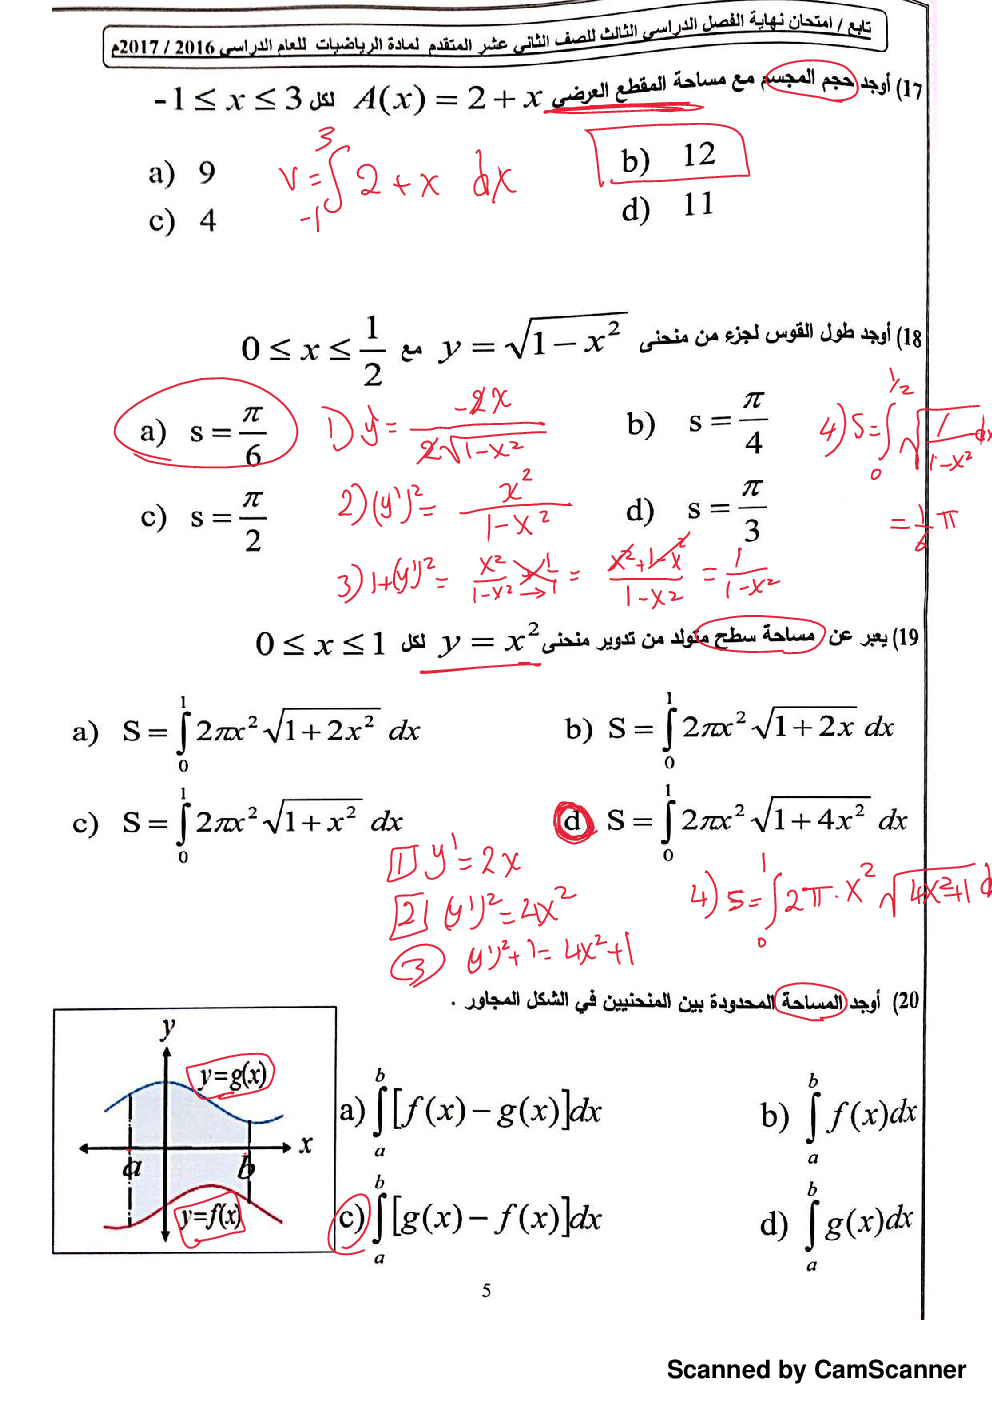 تابع / امتحان نهاية الفصل الدراسي الثالث للصف الثاني عشر المتقدم لمادة الرياضيات للعام الدراسي 2016 / 2017م
17) أوجد حجم المجسم مع مساحة المقطع العرضي A(x) = 2 + x لكل -1 ≤ x ≤ 3
a) 9
b) 12
V = ∫₋₁³ 2 + x dx
c) 4
d) 11
18) أوجد طول القوس لجزء من منحنى y = √(1 - x²) مع 0 ≤ x ≤ 1/2
a) s = π/6
b) s = π/4
c) s = π/2
d) s = π/3
1) y' = -2x / 2√(1-x²)
2) (y')² = x² / (1-x²)
3) 1+(y')² = x²/(1-x²) + 1/1 = (x²+1-x²)/(1-x²) = 1/(1-x²)
4) S = ∫₀^(1/2) √(1/(1-x²)) dx
= 1/6 π
19) يعبر عن مساحة سطح متولد من تدوير منحنى y = x² لكل 0 ≤ x ≤ 1
a) S = ∫₀¹ 2πx² √(1 + 2x²) dx
b) S = ∫₀¹ 2πx² √(1 + 2x) dx
c) S = ∫₀¹ 2πx² √(1 + x²) dx
d) S = ∫₀¹ 2πx² √(1 + 4x²) dx
1 y' = 2x
2 (y')² = 4x²
3 (y')² + 1 = 4x² + 1
4) S = ∫₀¹ 2π · x² √(4x²+1) d
20) أوجد المساحة المحدودة بين المنحنيين في الشكل المجاور .
y
y=g(x)
x
a
b
y=f(x)
a) ∫ₐᵇ [f(x) - g(x)]dx
b) ∫ₐᵇ f(x)dx
c) ∫ₐᵇ [g(x) - f(x)]dx
d) ∫ₐᵇ g(x)dx
5
Scanned by CamScanner